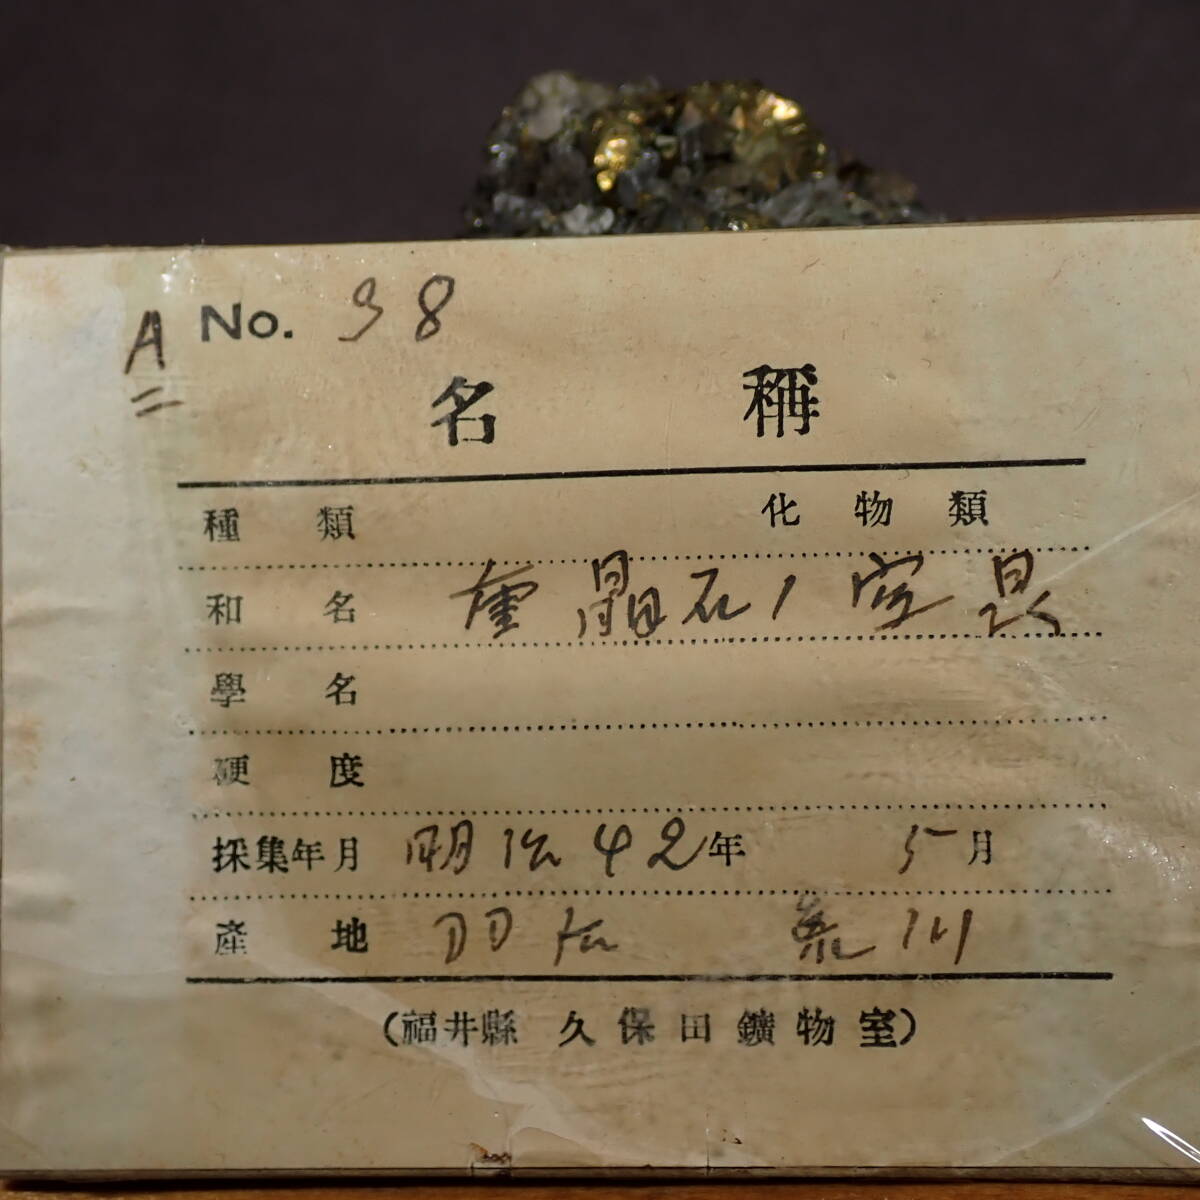 A No. 38
名稱
種類 化物類
和名 重晶石ノ空晶
學名
硬度
採集年月 明治42年 5月
產地 羽后 荒川
(福井縣 久保田鑛物室)